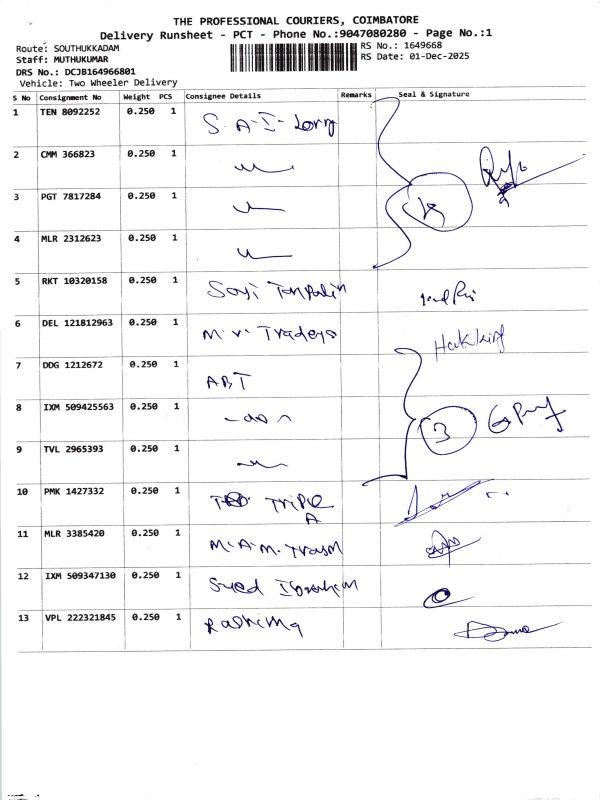 THE PROFESSIONAL COURIERS, COIMBATORE
Delivery Runsheet - PCT - Phone No.:9047080280 - Page No.:1
Route: SOUTHUKKADAM
RS No.: 1649668
Staff: MUTHUKUMAR
RS Date: 01-Dec-2025
DRS No.: DCJB164966801
Vehicle: Two Wheeler Delivery
S No Consignment No Weight PCS Consignee Details Remarks Seal & Signature
1 TEN 8092252 0.250 1 S. A-I-
2 CMM 366823 0.250 1
3 PGT 7817284 0.250 1
4 MLR 2312623 0.250 1
5 RKT 10320158 0.250 1
6 DEL 121812963 0.250 1 M. V. Traders
7 DDG 1212672 0.250 1 ABT
8 IXM 509425563 0.250 1 -do-
9 TVL 2965393 0.250 1
3
10 PMK 1427332 0.250 1 Triple A
11 MLR 3385420 0.250 1 M. A. M.
12 IXM 509347130 0.250 1 Syed Ibrahim
13 VPL 222321845 0.250 1